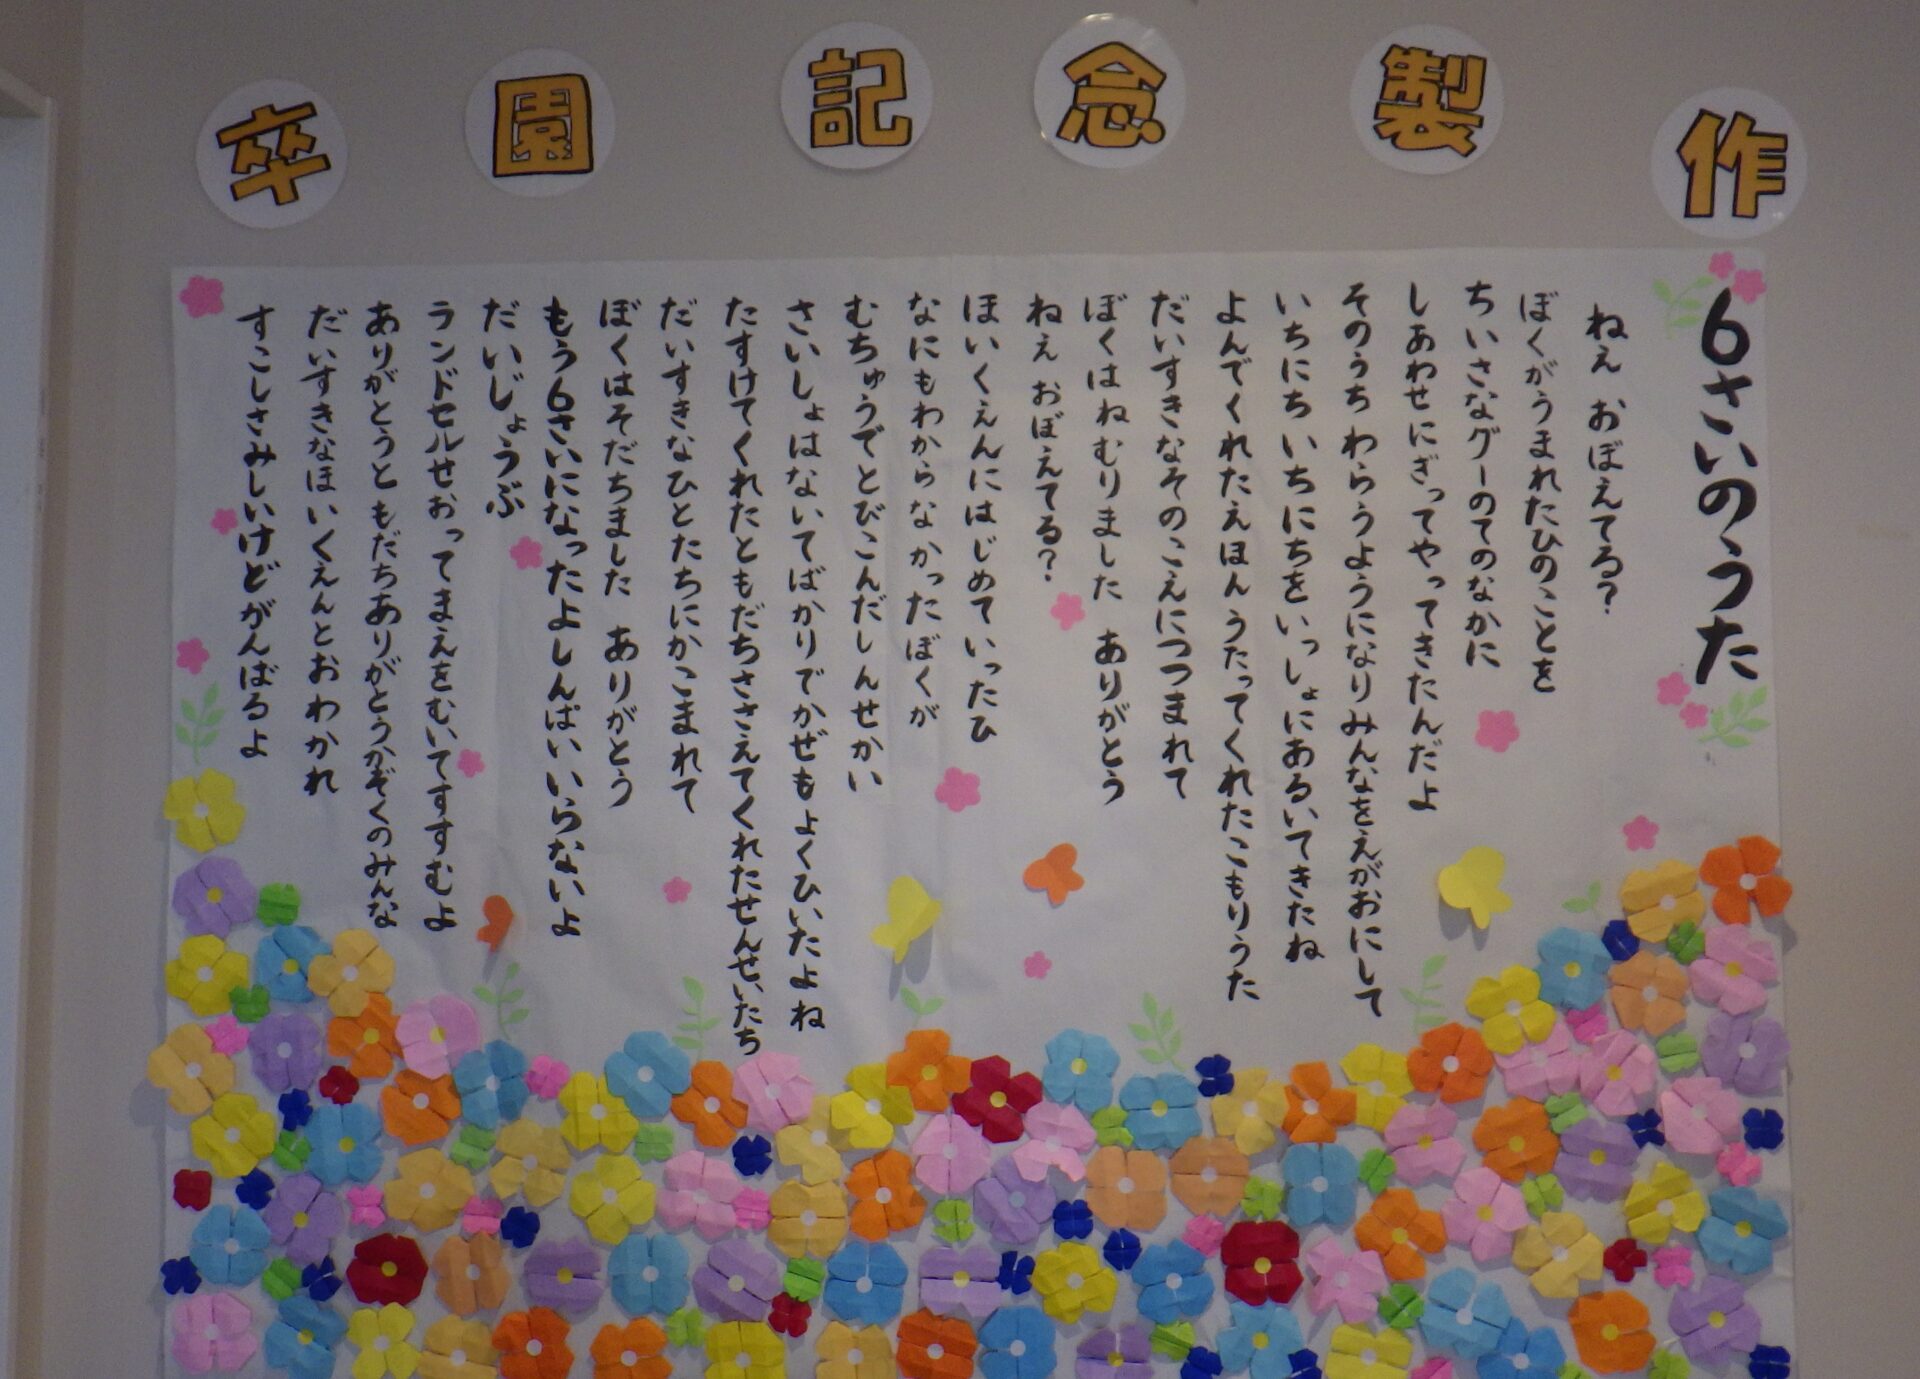 卒園記念製作
6さいのうた
ねえ おぼえてる?
ぼくがうまれたひのことを
ちいさなグーのてのなかに
しあわせにぎってやってきたんだよ
そのうち わらうようになりみんなをえがおにして
いちにち いちにちをいっしょにあるいてきたね
よんでくれたえほん うたってくれたこもりうた
だいすきなそのこえにつつまれて
ぼくはねむりました ありがとう
ねぇ おぼえてる?
ほいくえんにはじめていったひ
なにもわからなかったぼくが
むちゅうでとびこんだしんせかい
さいしょはないてばかりでかぜもよくひいたよね
たすけてくれたともだちささえてくれたせんせいたち
だいすきなひとたちにかこまれて
ぼくはそだちました ありがとう
もう6さいになったよしんぱいいらないよ
だいじょうぶ
ランドセルせおってまえをむいてすすむよ
ありがとうともだちありがとうかぞくのみんな
だいすきなほいくえんとおわかれ
すこしさみしいけどがんばるよ